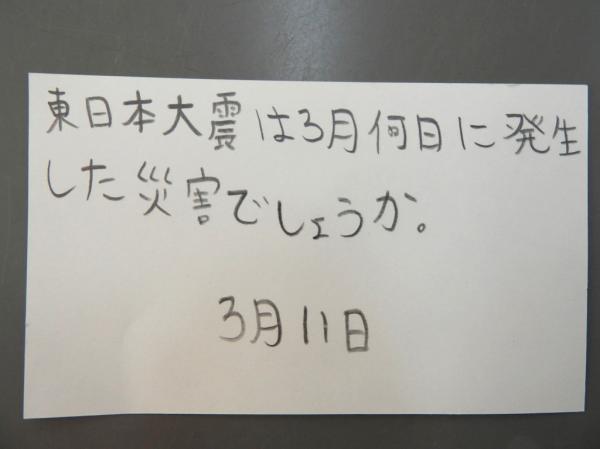 東日本大震は3月何日に発生
した災害でしょうか。
3月11日